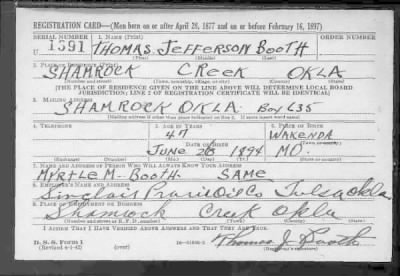 REGISTRATION CARD—(Men born on or after April 28, 1877 and on or before February 16, 1897)
SERIAL NUMBER 1. NAME (Print) ORDER NUMBER
U 1591 THOMAS JEFFERSON BOOTH
2. PLACE OF RESIDENCE (Print)
SHAMROCK CREEK OKLA
(Number and street) (Town, township, village, or city) (County) (State)
[THE PLACE OF RESIDENCE GIVEN ON THE LINE ABOVE WILL DETERMINE LOCAL BOARD
JURISDICTION; LINE 2 OF REGISTRATION CERTIFICATE WILL BE IDENTICAL]
3. MAILING ADDRESS
SHAMROCK OKLA. BOX 635
[Mailing address if other than place indicated on line 2. If same insert word same]
4. TELEPHONE 5. AGE IN YEARS 6. PLACE OF BIRTH
47 WAKENDA
DATE OF BIRTH
JUNE 26 1894 MO.
(Exchange) (Number) (Mo.) (Day) (Yr.) (State or country)
7. NAME AND ADDRESS OF PERSON WHO WILL ALWAYS KNOW YOUR ADDRESS
MYRTLE M- BOOTH- SAME
8. EMPLOYER'S NAME AND ADDRESS
Sinclair Prairie Oil Co Tulsa Okla
9. PLACE OF EMPLOYMENT OR BUSINESS
Shamrock Creek Okla
(Number and street or R. F. D. number) (Town) (County) (State)
I AFFIRM THAT I HAVE VERIFIED ABOVE ANSWERS AND THAT THEY ARE TRUE.
D. S. S. Form 1
(Revised 4-1-42) (over) Thomas J. Booth